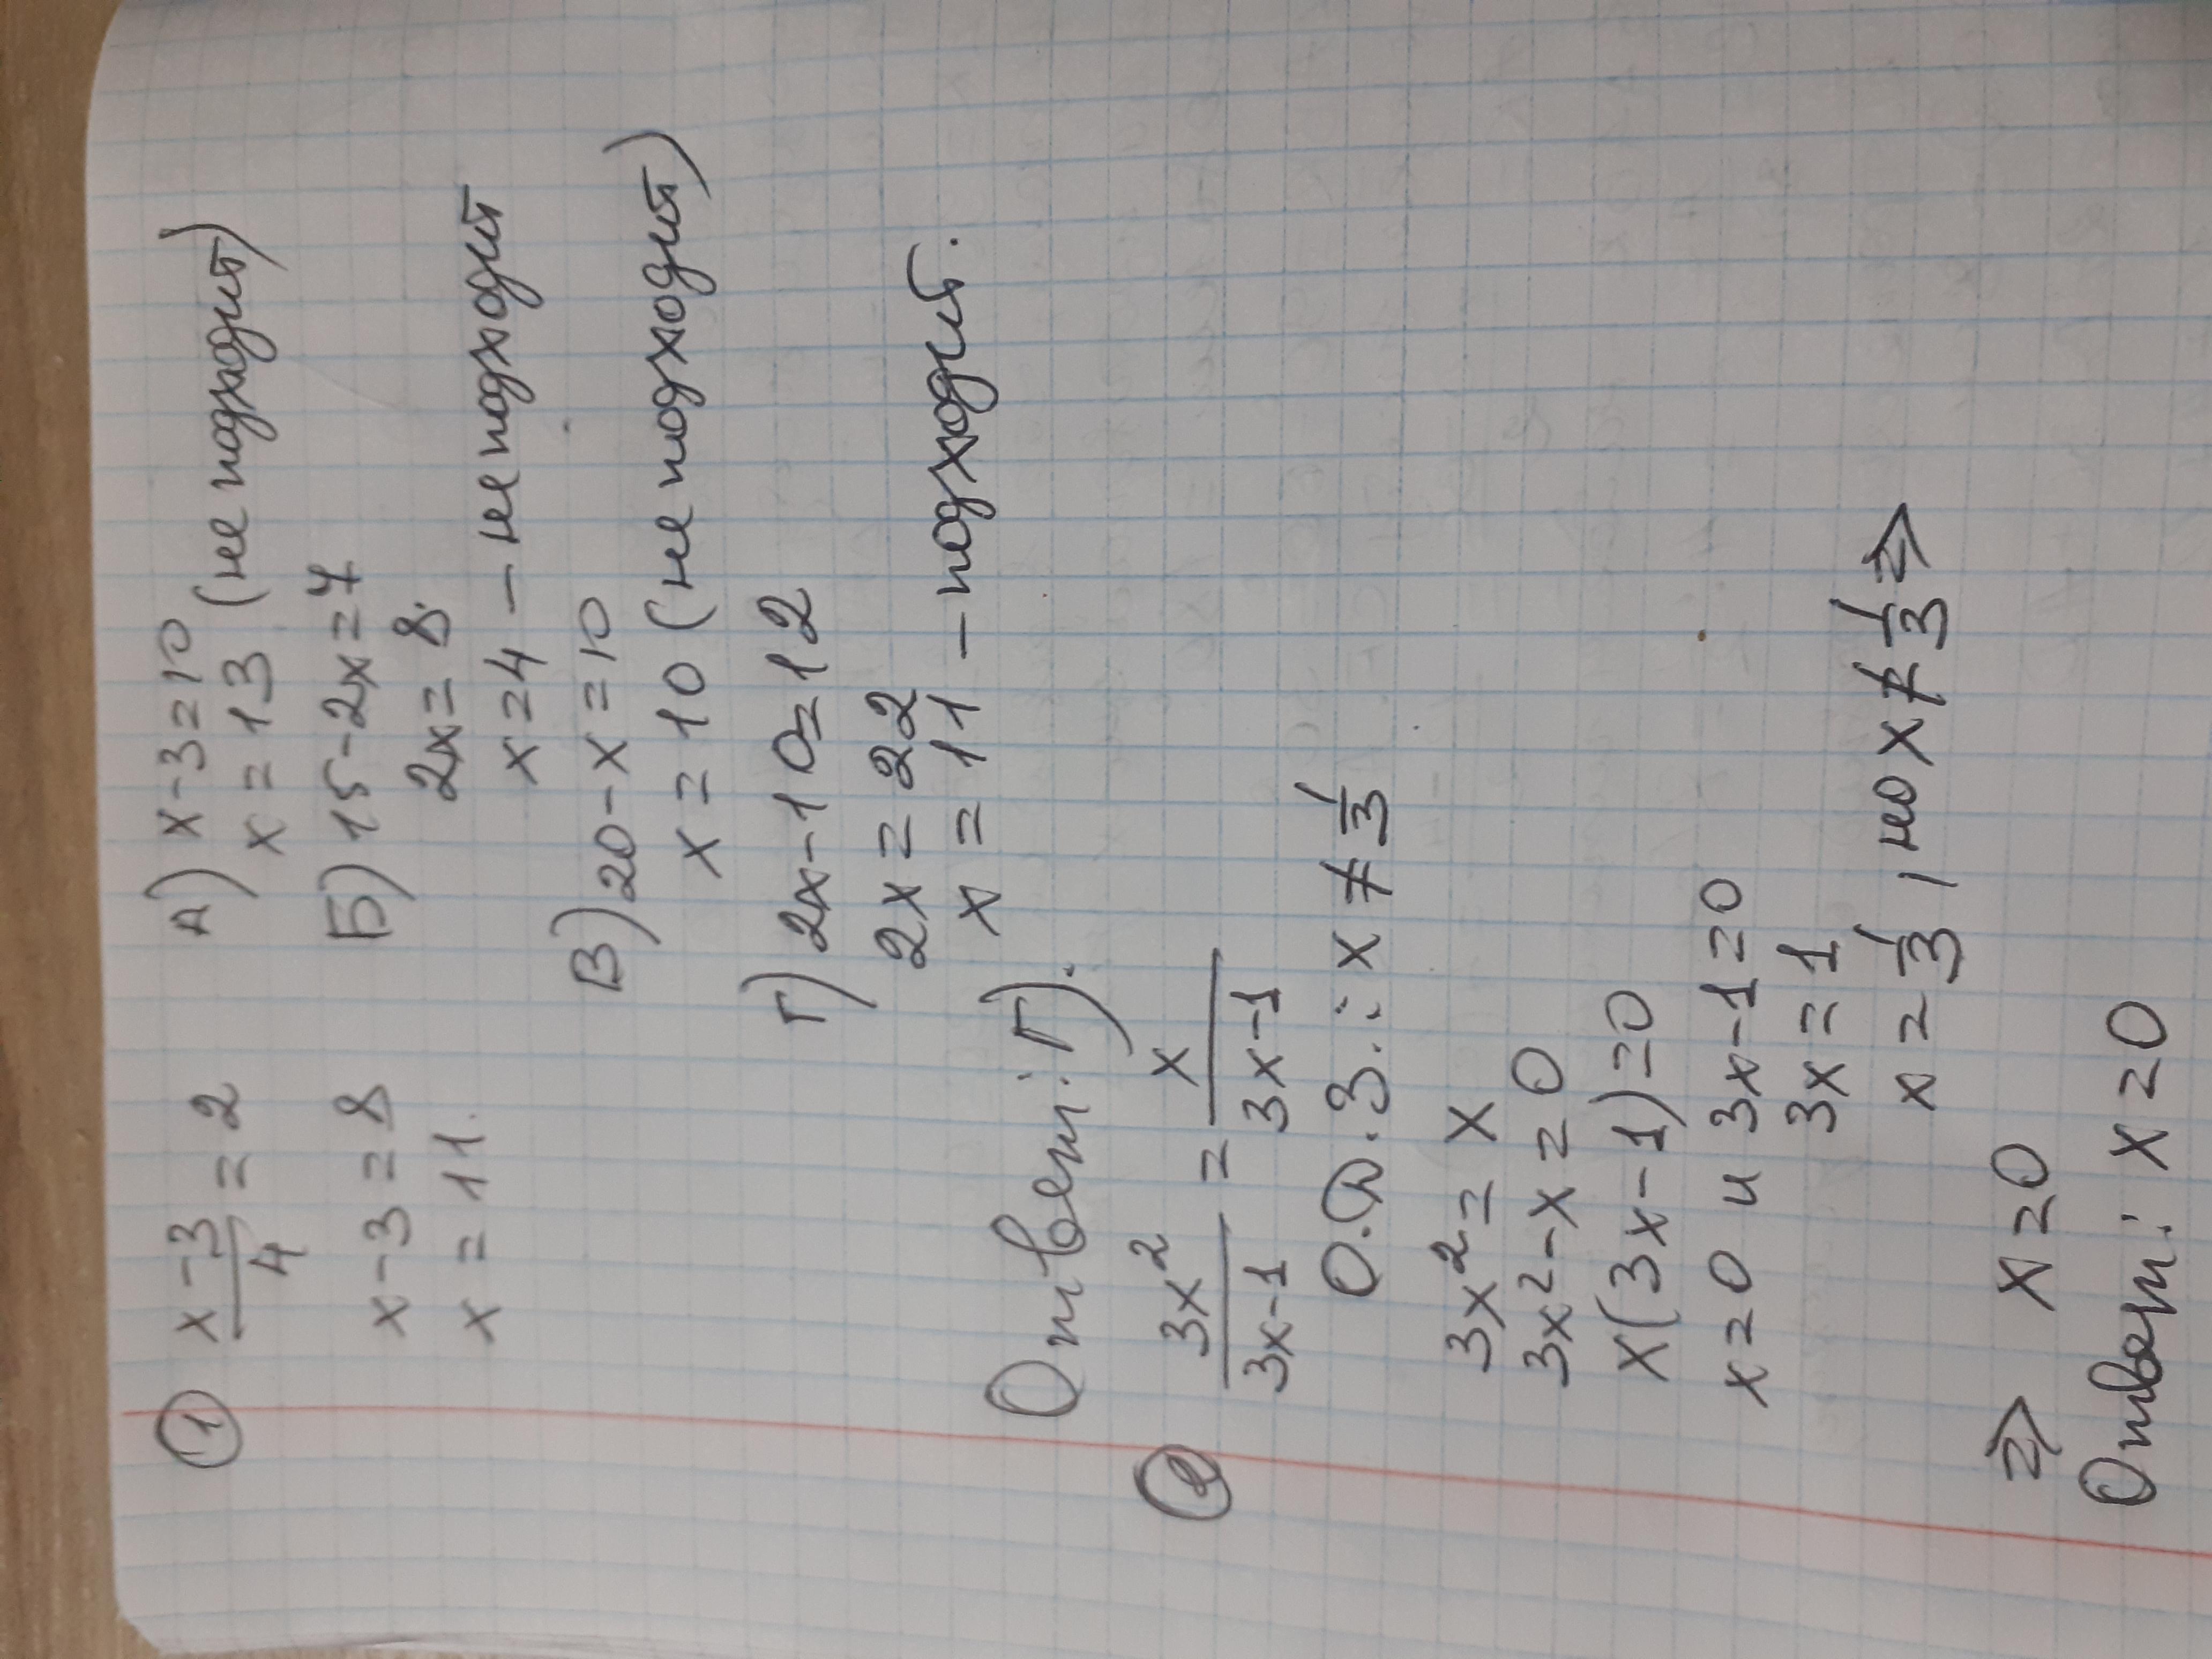 ① x-3/4 = 2
x-3=8
x=11.
А) x-3=10
x=13 (не подходит)
Б) 15-2x=7
2x=8.
x=4 - не подходит
В) 20-x=10
x=10 (не подходит)
Г) 2x-10=12
2x=22
x=11 - подходит.
Ответ: Г).
② 3x²/3x-1 = x/3x-1
О.Д.З.: x≠1/3
3x²=x
3x²-x=0
x(3x-1)=0
x=0 и 3x-1=0
3x=1
x=1/3, но x≠1/3 ⇒
⇒ x=0
Ответ: x=0